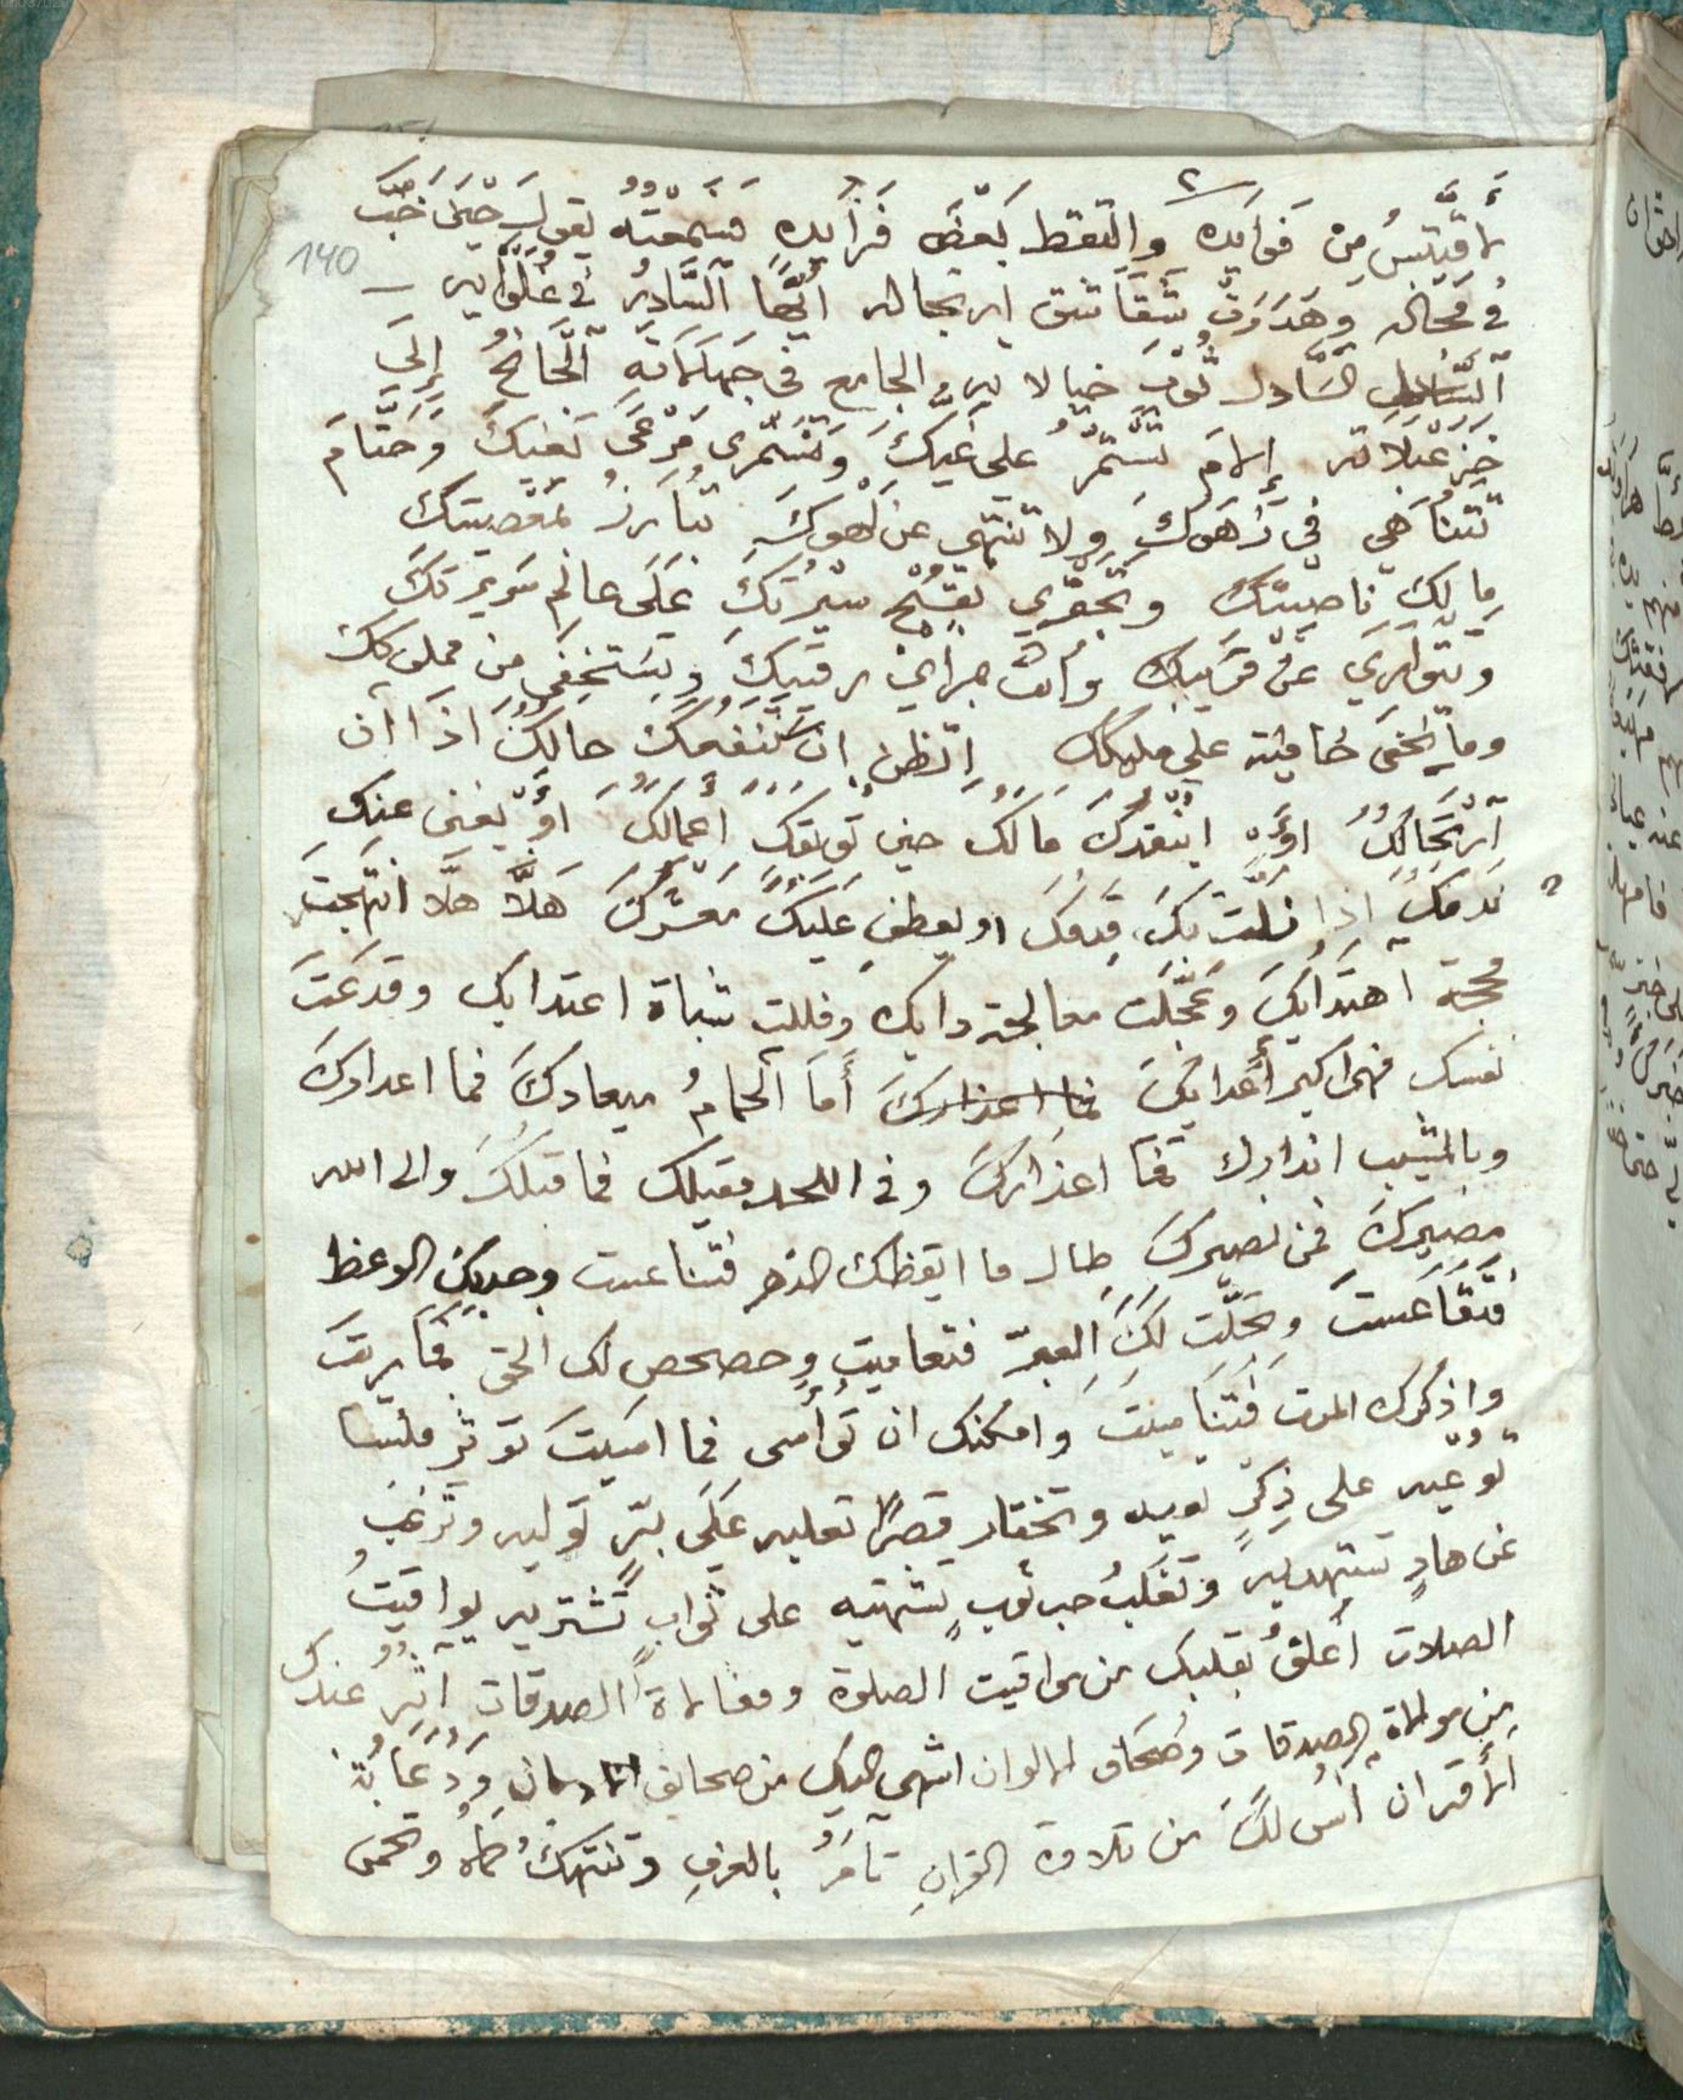 ٢
لأقتبسُ من فوايده والتقط بَعْضَ فَرَايدِهِ فَسَمِعْتُهُ يقول حِيَن خَبَّ
140
في مجاله وهَدَرَتْ شَقَاشق ارتجاله ايُّهَا السَّادِرُ في غُلَوَايه
السَّادل ثَوْبَ خيالايه الجامع في جَهَلَاتَهِ الجَانحُ إلى
خزَعْبَلاته إلامَ تستَمرُّ على غَيّكَ وتَسْتَمْرى مَرْعَى بَغيكَ وَحَتَّامَ
تتنَاهَي في زَهوكَ ولا تنتهي عن لَهوكَ تُبَارزُ بمَعْصيتكَ
مالِكَ ناصيتكَ وتجترِي بقُبْح سيْرتكَ عَلَى عالِم سَرِيْرَتكَ
وتتوَارَي عَنْ قَرَيبك وانتَ بمراي رقيبِكَ وتَستَخفِى من مملوكك
وما تخفَى خافية على مليكك اتظن ان سَتنفعُكَ حالكَ اذَا آن
ارْتِحَالكُ اوْ ينقذكَ مالك حين توبقك أعمالكُ أوْ يغنى عنك
ندمكَ اذا زلّت بِكَ قدمكَ او يعطف عليكَ معشركَ هَلَّا هلّا انتهجتَ
محجة اهتدَايكَ وعَجّلت معالجة دايك وفللت شباة اعتدايك وقدعتَ
نفسك فهى اكبر أعدايكَ فما اعذارك أَمَا الحمامُ ميعادكَ فما اعدادكَ
وبالمشيب انذارك فما اعذاركَ وفي اللحد مقيلك فما قيلكَ والى الله
مصيركَ فمن نصيركَ طال ما ايقظك الدهر فتناعست وجدبكَ الوعظ
فتقاعَستَ وتجلّت لكَ العِبرُ فتعاميت وحصحص لك الحق فمارَيتَ
واذكرك الموت فتنَاسيتَ وامكنك ان تواسى فما اسَيتَ تؤثر فلسًا
تُوعيه على ذِكرٍ تعيه وتختار قصْرًا تعليه عَلَى بِرٍّ تُوليه وترْغبُ
عن هادٍ تستهديه وتغلّبُ حب ثوبٍ تشتهيه على ثوابٍ تَشتريه يواقيتُ
الصلات أعلقُ بقلبك من مواقيت الصلوة ومغالاة الصدقات اثرُ عندك
من موالاة الصدقات وصحَاف الالوان اشهى اليك من صحايف الاديان ودُعَابَة
الأقران انسُ لكَ من تلاوة القران تامُرُ بالعرف وتنتهكُ حماه وتحمى